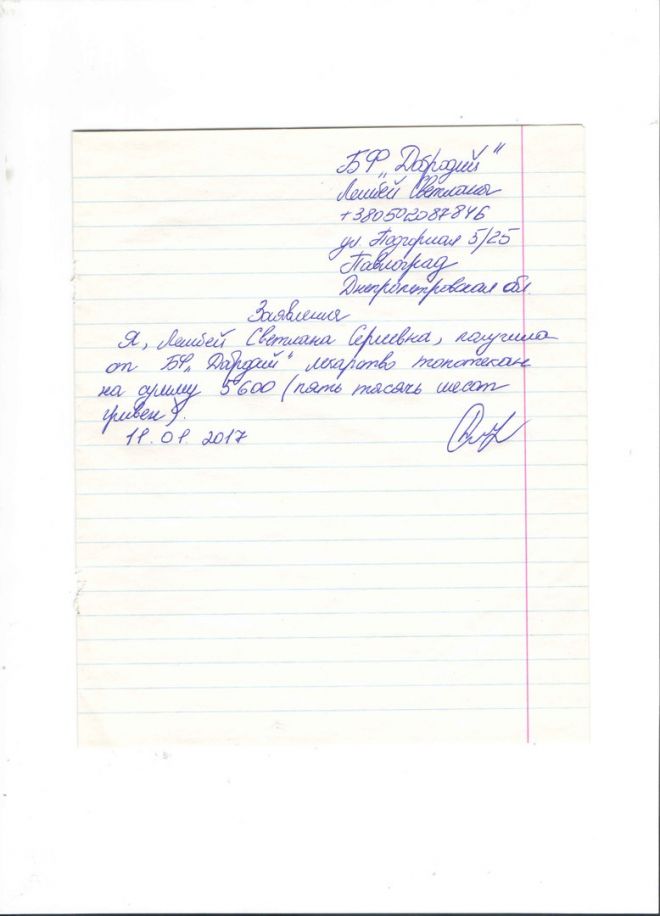 БФ „Добродий"
Лембей Светлана
+380502087846
ул Подгорная 5/25
Павлоград
Днепропетровская обл.
Заявления
Я, Лембей Светлана Сергеевна, получила
от БФ „Дабродий" лекарство топотекан
на сумму 5600 (пять тысячь шесот
гривен).
11.01.2017